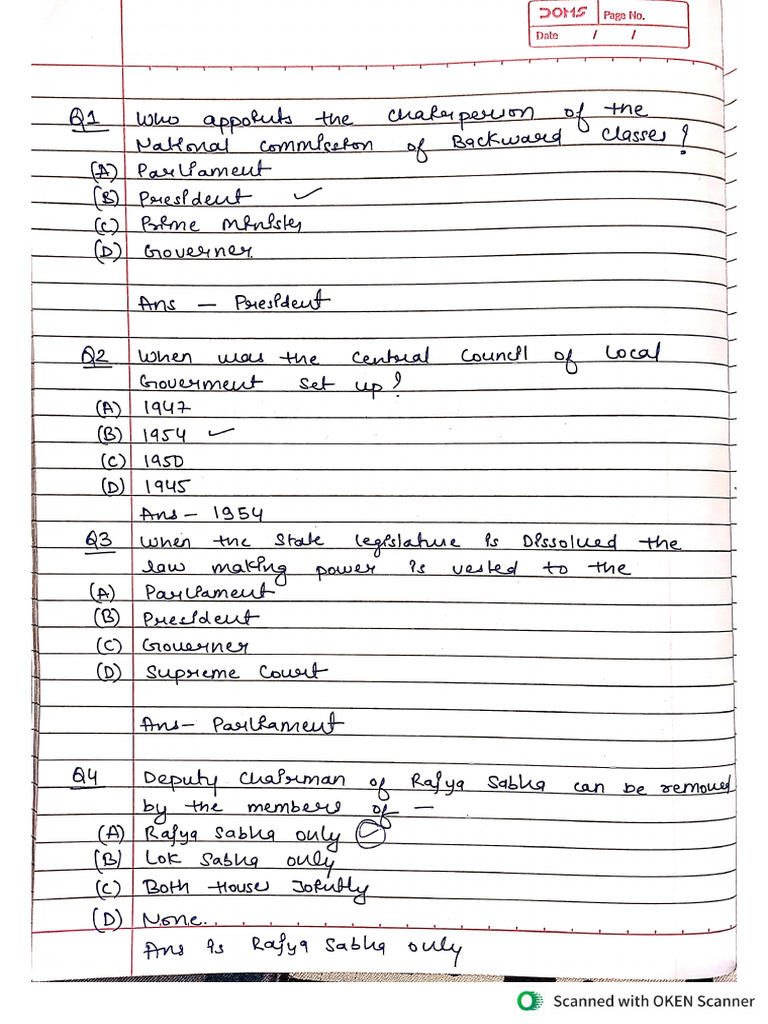 DOMS Page No.
Date / /
Q1 Who appoints the chairperson of the
National commission of Backward classes?
(A) Parliament
(B) President ✓
(C) Prime Minister
(D) Governer.
Ans - President
Q2 When was the central council of local
Goverment set up?
(A) 1947
(B) 1954 ✓
(C) 1950
(D) 1945
Ans - 1954
Q3 When the state legislature is Dissolved the
law making power is vested to the
(A) Parliament
(B) President
(C) Governer
(D) Supreme Court
Ans - Parliament
Q4 Deputy chairman of Rajya Sabha can be removed
by the members of —
(A) Rajya Sabha only ✓
(B) Lok Sabha only
(C) Both House Jointly
(D) None.
Ans is Rajya Sabha only
Scanned with OKEN Scanner